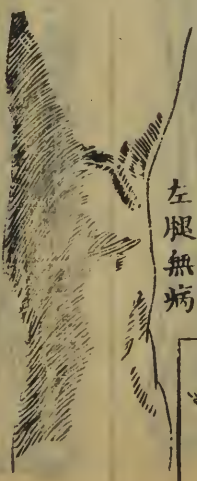 左腿無病